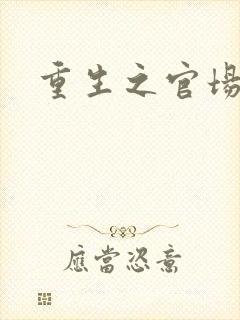 重生之官场
應當恣意